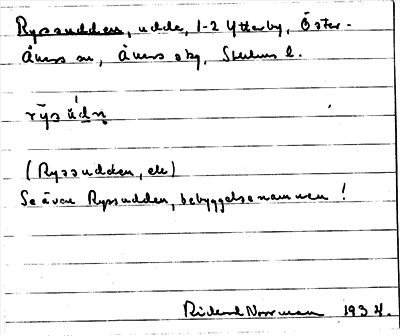 Ryssudden, udde, 1-2 Ytterby, Öster-
Åkers sn, Åkers sky, Sthlms l.
(Ryssudden, ek)
Se även Ryssudden, bebyggelsenamnen!
Rickard Norrman 1934.